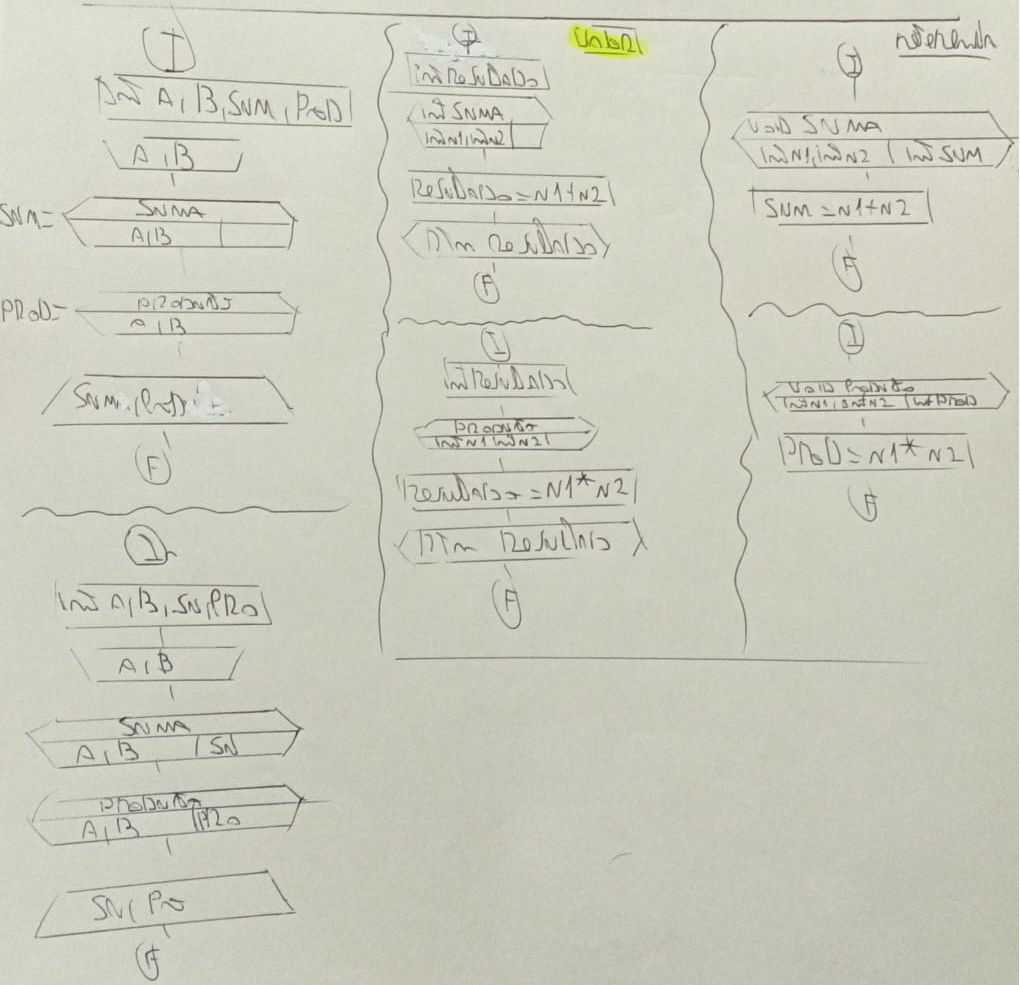 I
Int A, B, SUM, PROD
A, B
SUM=
SUMA
A, B
PROD=
PRODUCTO
A, B
SUM, PROD
F
I
Int A, B, SU, PRO
A, B
SUMA
A, B | SU
PRODUCTO
A, B | PRO
SU, PRO
F
VALOR
I
int Resultado
int SUMA
int N1, int N2
Resultado = N1+N2
RTN Resultado
F
I
int Resultado
PRODUCTO
int N1 int N2
Resultado = N1*N2
RTN Resultado
F
referencia
I
Void SUMA
int N1, int N2 | int SUM
SUM = N1+N2
F
I
Void Producto
int N1, int N2 | int PROD
PROD = N1*N2
F